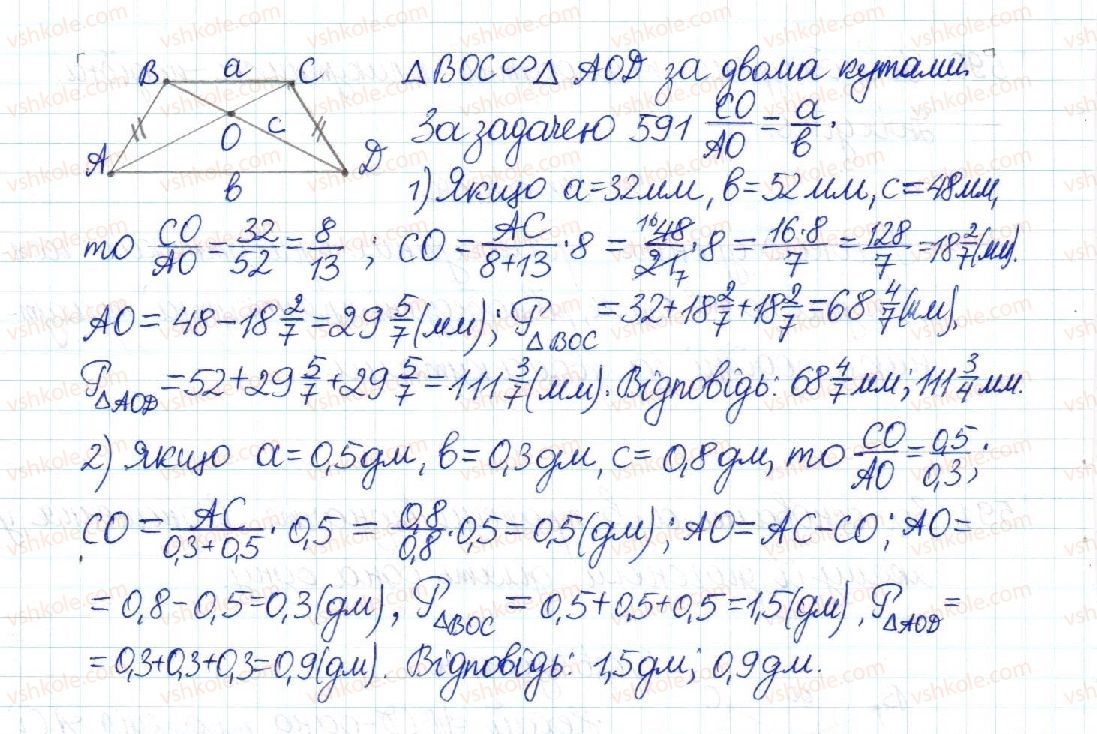 B a C
O c
A в D
△BOC∽△AOD за двома кутами.
За задачею 591 CO/AO = a/в.
1) Якщо a=32мм, в=52мм, c=48мм,
то CO/AO = 32/52 = 8/13 ; CO = AC/(8+13) · 8 = 48/21 · 8 = (16·8)/7 = 128/7 = 18 2/7 (мм).
16 7
AO = 48 − 18 2/7 = 29 5/7 (мм); P△BOC = 32 + 18 2/7 + 18 2/7 = 68 4/7 (мм),
P△AOD = 52 + 29 5/7 + 29 5/7 = 111 3/7 (мм). Відповідь: 68 4/7 мм; 111 3/4 мм.
2) Якщо a = 0,5дм, в = 0,3дм, c = 0,8дм, то CO/AO = 0,5/0,3 ;
CO = AC/(0,3+0,5) · 0,5 = 0,8/0,8 · 0,5 = 0,5 (дм) ; AO = AC − CO ; AO =
= 0,8 − 0,5 = 0,3 (дм), P△BOC = 0,5+0,5+0,5 = 1,5 (дм), P△AOD =
= 0,3+0,3+0,3 = 0,9 (дм). Відповідь: 1,5дм; 0,9дм.
vshkole.com